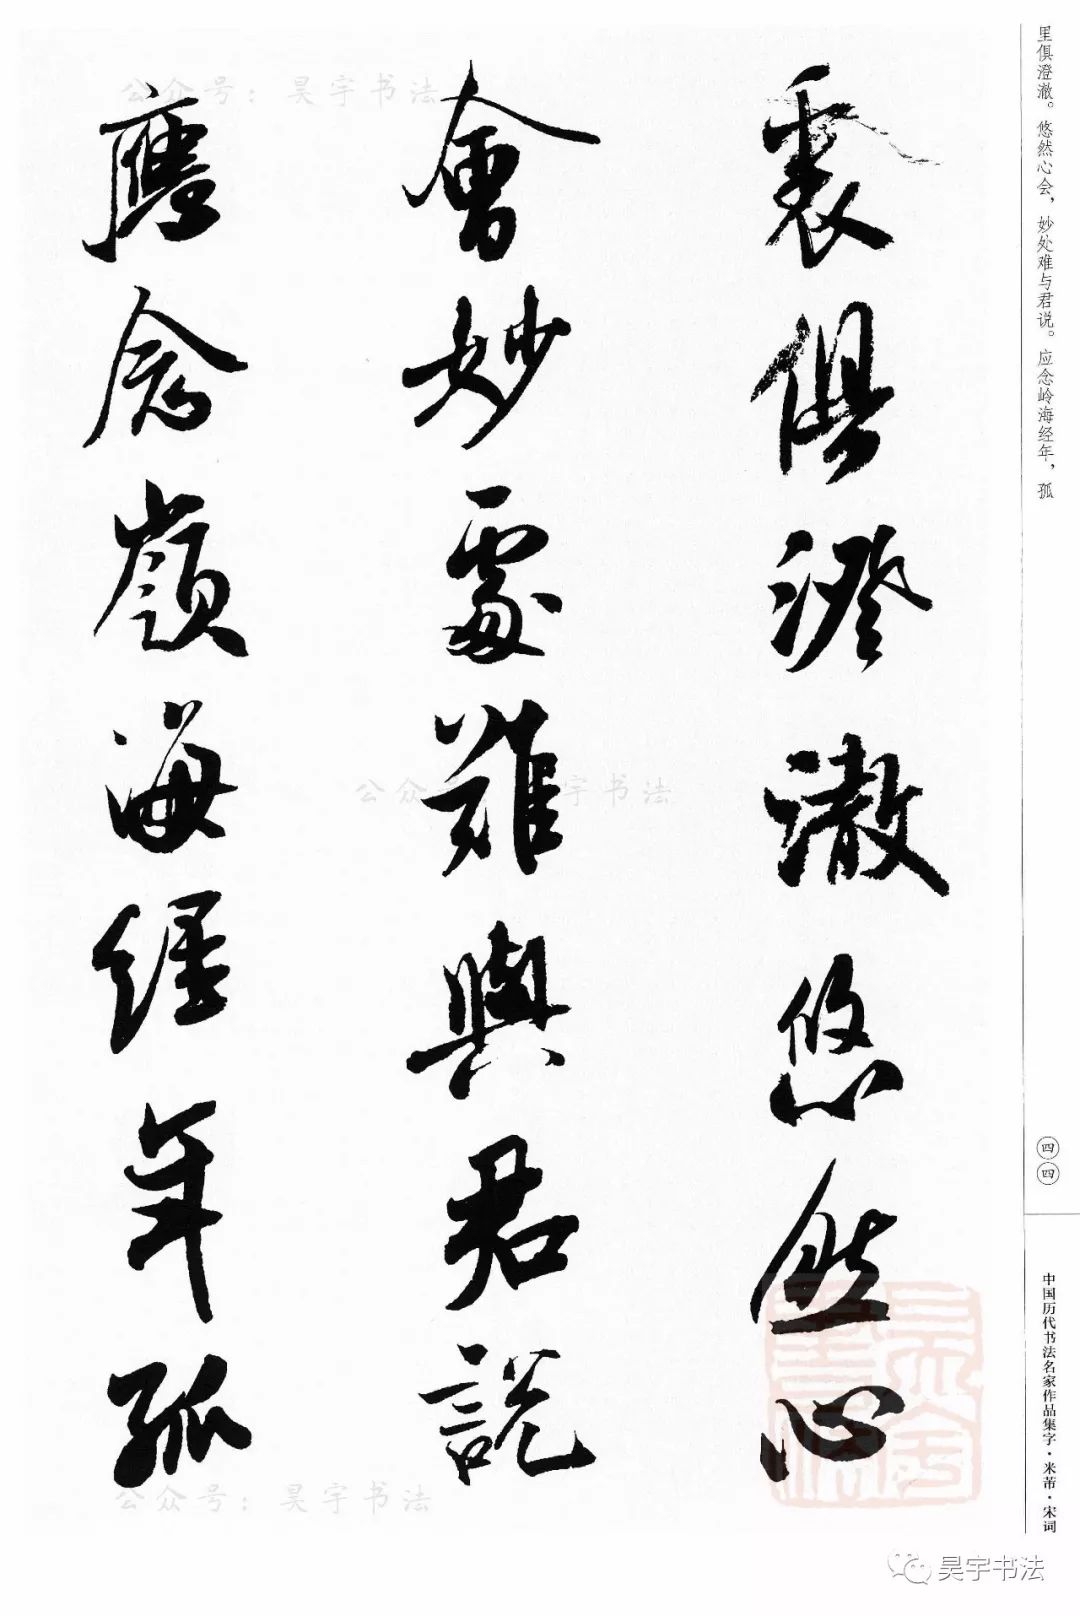 里俱澄澈。悠然心会，妙处难与君说。应念岭海经年，孤
裏俱澄澈悠然心
會妙處難與君說
應念嶺海經年孤
四四
中国历代书法名家作品集字·米芾·宋词
公众号：昊宇书法
公众号：昊宇书法
公众号：昊宇书法
昊宇书法